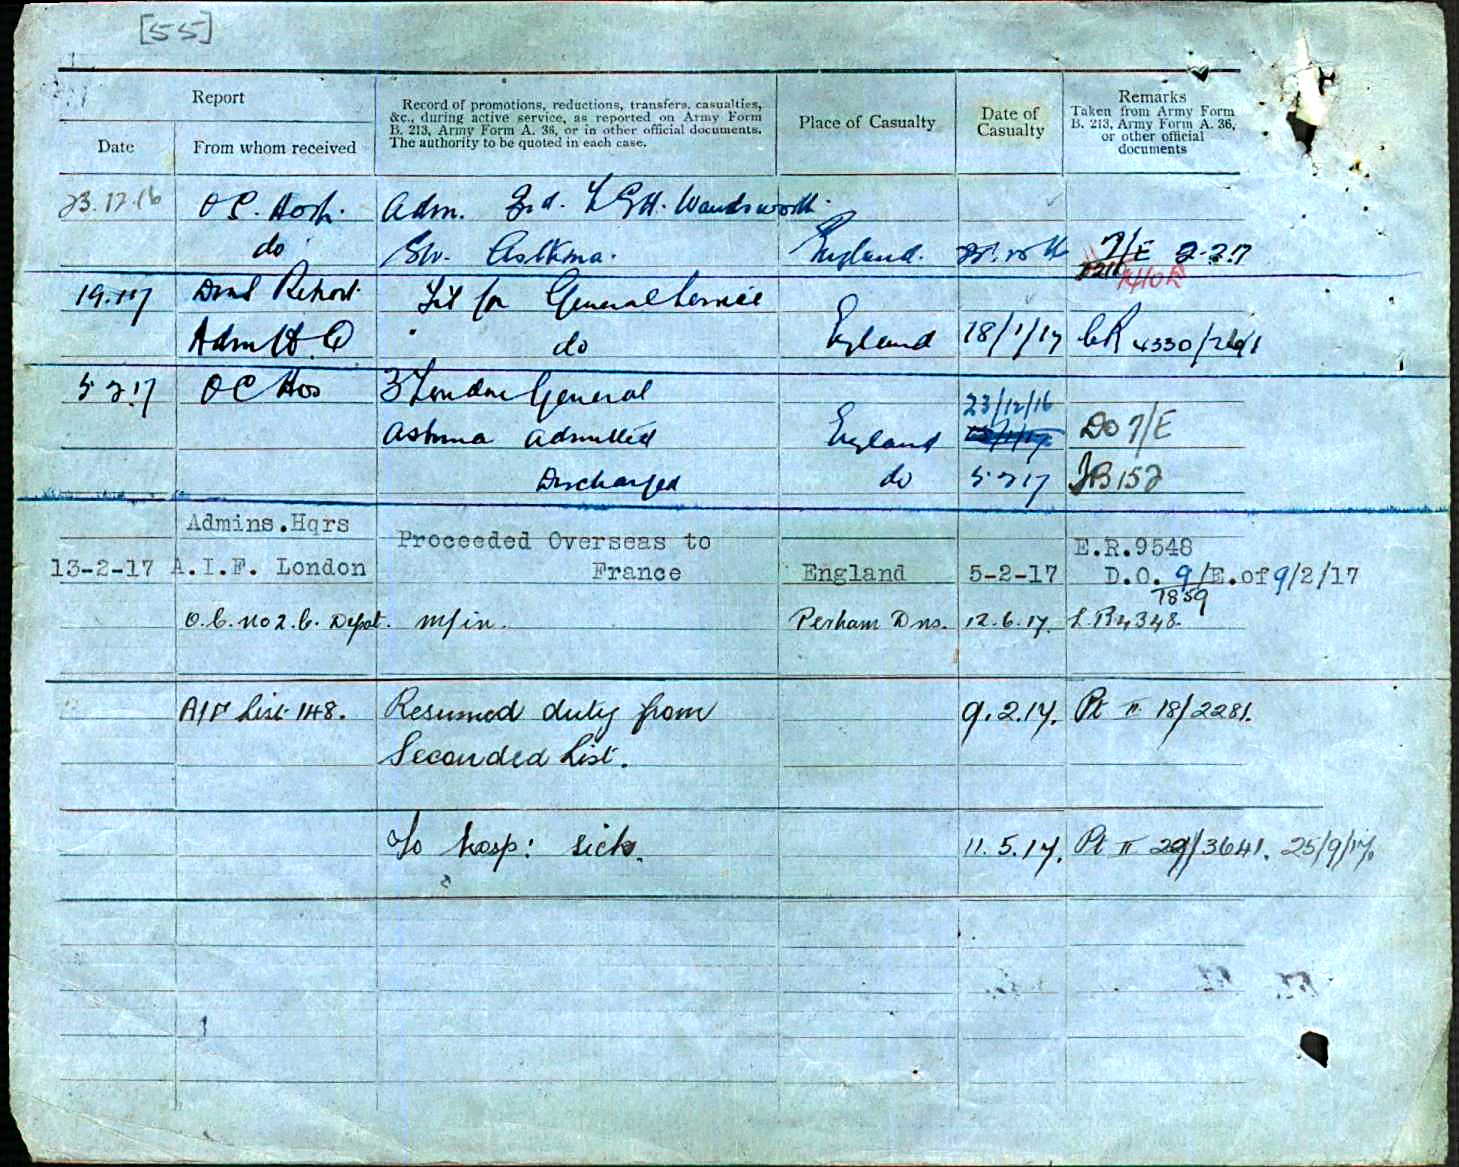 [55]
Report
Record of promotions, reductions, transfers, casualties,
&c., during active service, as reported on Army Form
B. 213, Army Form A. 36, or in other official documents.
The authority to be quoted in each case.
Place of Casualty
Date of
Casualty
Remarks
Taken from Army Form
B. 213, Army Form A. 36,
or other official
documents
Date
From whom received
23.12.16 O C. Hosp. Adm. 3rd. L G H. Wandsworth.
do Asthma. England. 7/E 2.2.17
19.1.17 Report Fit for General Service
Adm H.Q do England 18/1/17
5 2 17 O C Hos 3 London General
23/12/16
Asthma admitted England DO 7/E
Discharged do 5 2 17 152
Admins.Hqrs
13-2-17 A.I.F. London Proceeded Overseas to
France England 5-2-17 E.R.9548
D.O. 9/E.of 9/2/17
7859
O.C. No 2. C. Depot. M/in. Perham Dns. 12.6.17. 4348
List 148. Resumed duty from 9.2.17. Pt II 18/2281.
Seconded List.
To hosp: sick. 11.5.17. Pt II 3641. 25/9/17.